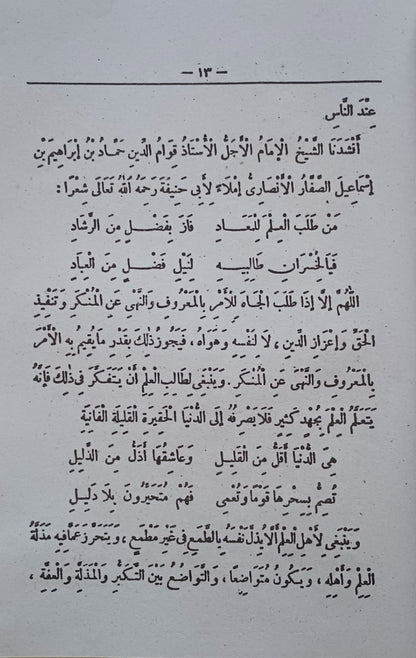 - ١٣ -
عِنْدَ النَّاسِ
أَنْشَدَنَا الشَّيْخُ الْإِمَامُ الْأَجَلُّ الْأُسْتَاذُ قَوَامُ الدِّينِ حَمَّادُ بْنُ إِبْرَاهِيمَ بْنِ
إِسْمَاعِيلَ الصَّفَّارُ الْأَنْصَارِىُّ إِمْلَاءً لِأَبِى حَنِيفَةَ رَحِمَهُ اللّٰهُ تَعَالَى شِعْرًا :
مَنْ طَلَبَ الْعِلْمَ لِلْمَعَادِ فَازَ بِفَضْلٍ مِنَ الرَّشَادِ
فَيَالِخُسْرَانِ طَالِبِيهِ لِنَيْلِ فَضْلٍ مِنَ الْعِبَادِ
اَللّٰهُمَّ إِلَّا إِذَا طَلَبَ الْجَاهَ لِلْأَمْرِ بِالْمَعْرُوفِ وَالنَّهْىِ عَنِ الْمُنْكَرِ وَتَنْفِيذِ
الْحَقِّ وَإِعْزَازِ الدِّينِ ، لَا لِنَفْسِهِ وَهَوَاهُ ، فَيَجُوزُ ذٰلِكَ بِقَدْرِ مَا يُقِيمُ بِهِ الْأَمْرَ
بِالْمَعْرُوفِ وَالنَّهْىَ عَنِ الْمُنْكَرِ . وَيَنْبَغِى لِطَالِبِ الْعِلْمِ أَنْ يَتَفَكَّرَ فِى ذٰلِكَ فَإِنَّهُ
يَتَعَلَّمُ الْعِلْمَ بِجُهْدٍ كَثِيرٍ فَلَا يَصْرِفُهُ إِلَى الدُّنْيَا الْحَقِيرَةِ الْقَلِيلَةِ الْفَانِيَةِ
هِىَ الدُّنْيَا أَقَلُّ مِنَ الْقَلِيلِ وَعَاشِقُهَا أَذَلُّ مِنَ الذَّلِيلِ
تُصِمُّ بِسِحْرِهَا قَوْمًا وَتُعْمِى فَهُمْ مُتَحَيِّرُونَ بِلَا دَلِيلِ
وَيَنْبَغِى لِأَهْلِ الْعِلْمِ أَلَّا يُذِلَّ نَفْسَهُ بِالطَّمَعِ فِى غَيْرِ مَطْمَعٍ ، وَيَتَحَرَّزَ عَمَّا فِيهِ مَذَلَّةُ
الْعِلْمِ وَأَهْلِهِ ، وَيَكُونُ مُتَوَاضِعًا ، وَالتَّوَاضُعُ بَيْنَ التَّكَبُّرِ وَالْمَذَلَّةِ وَالْعِفَّةِ ،